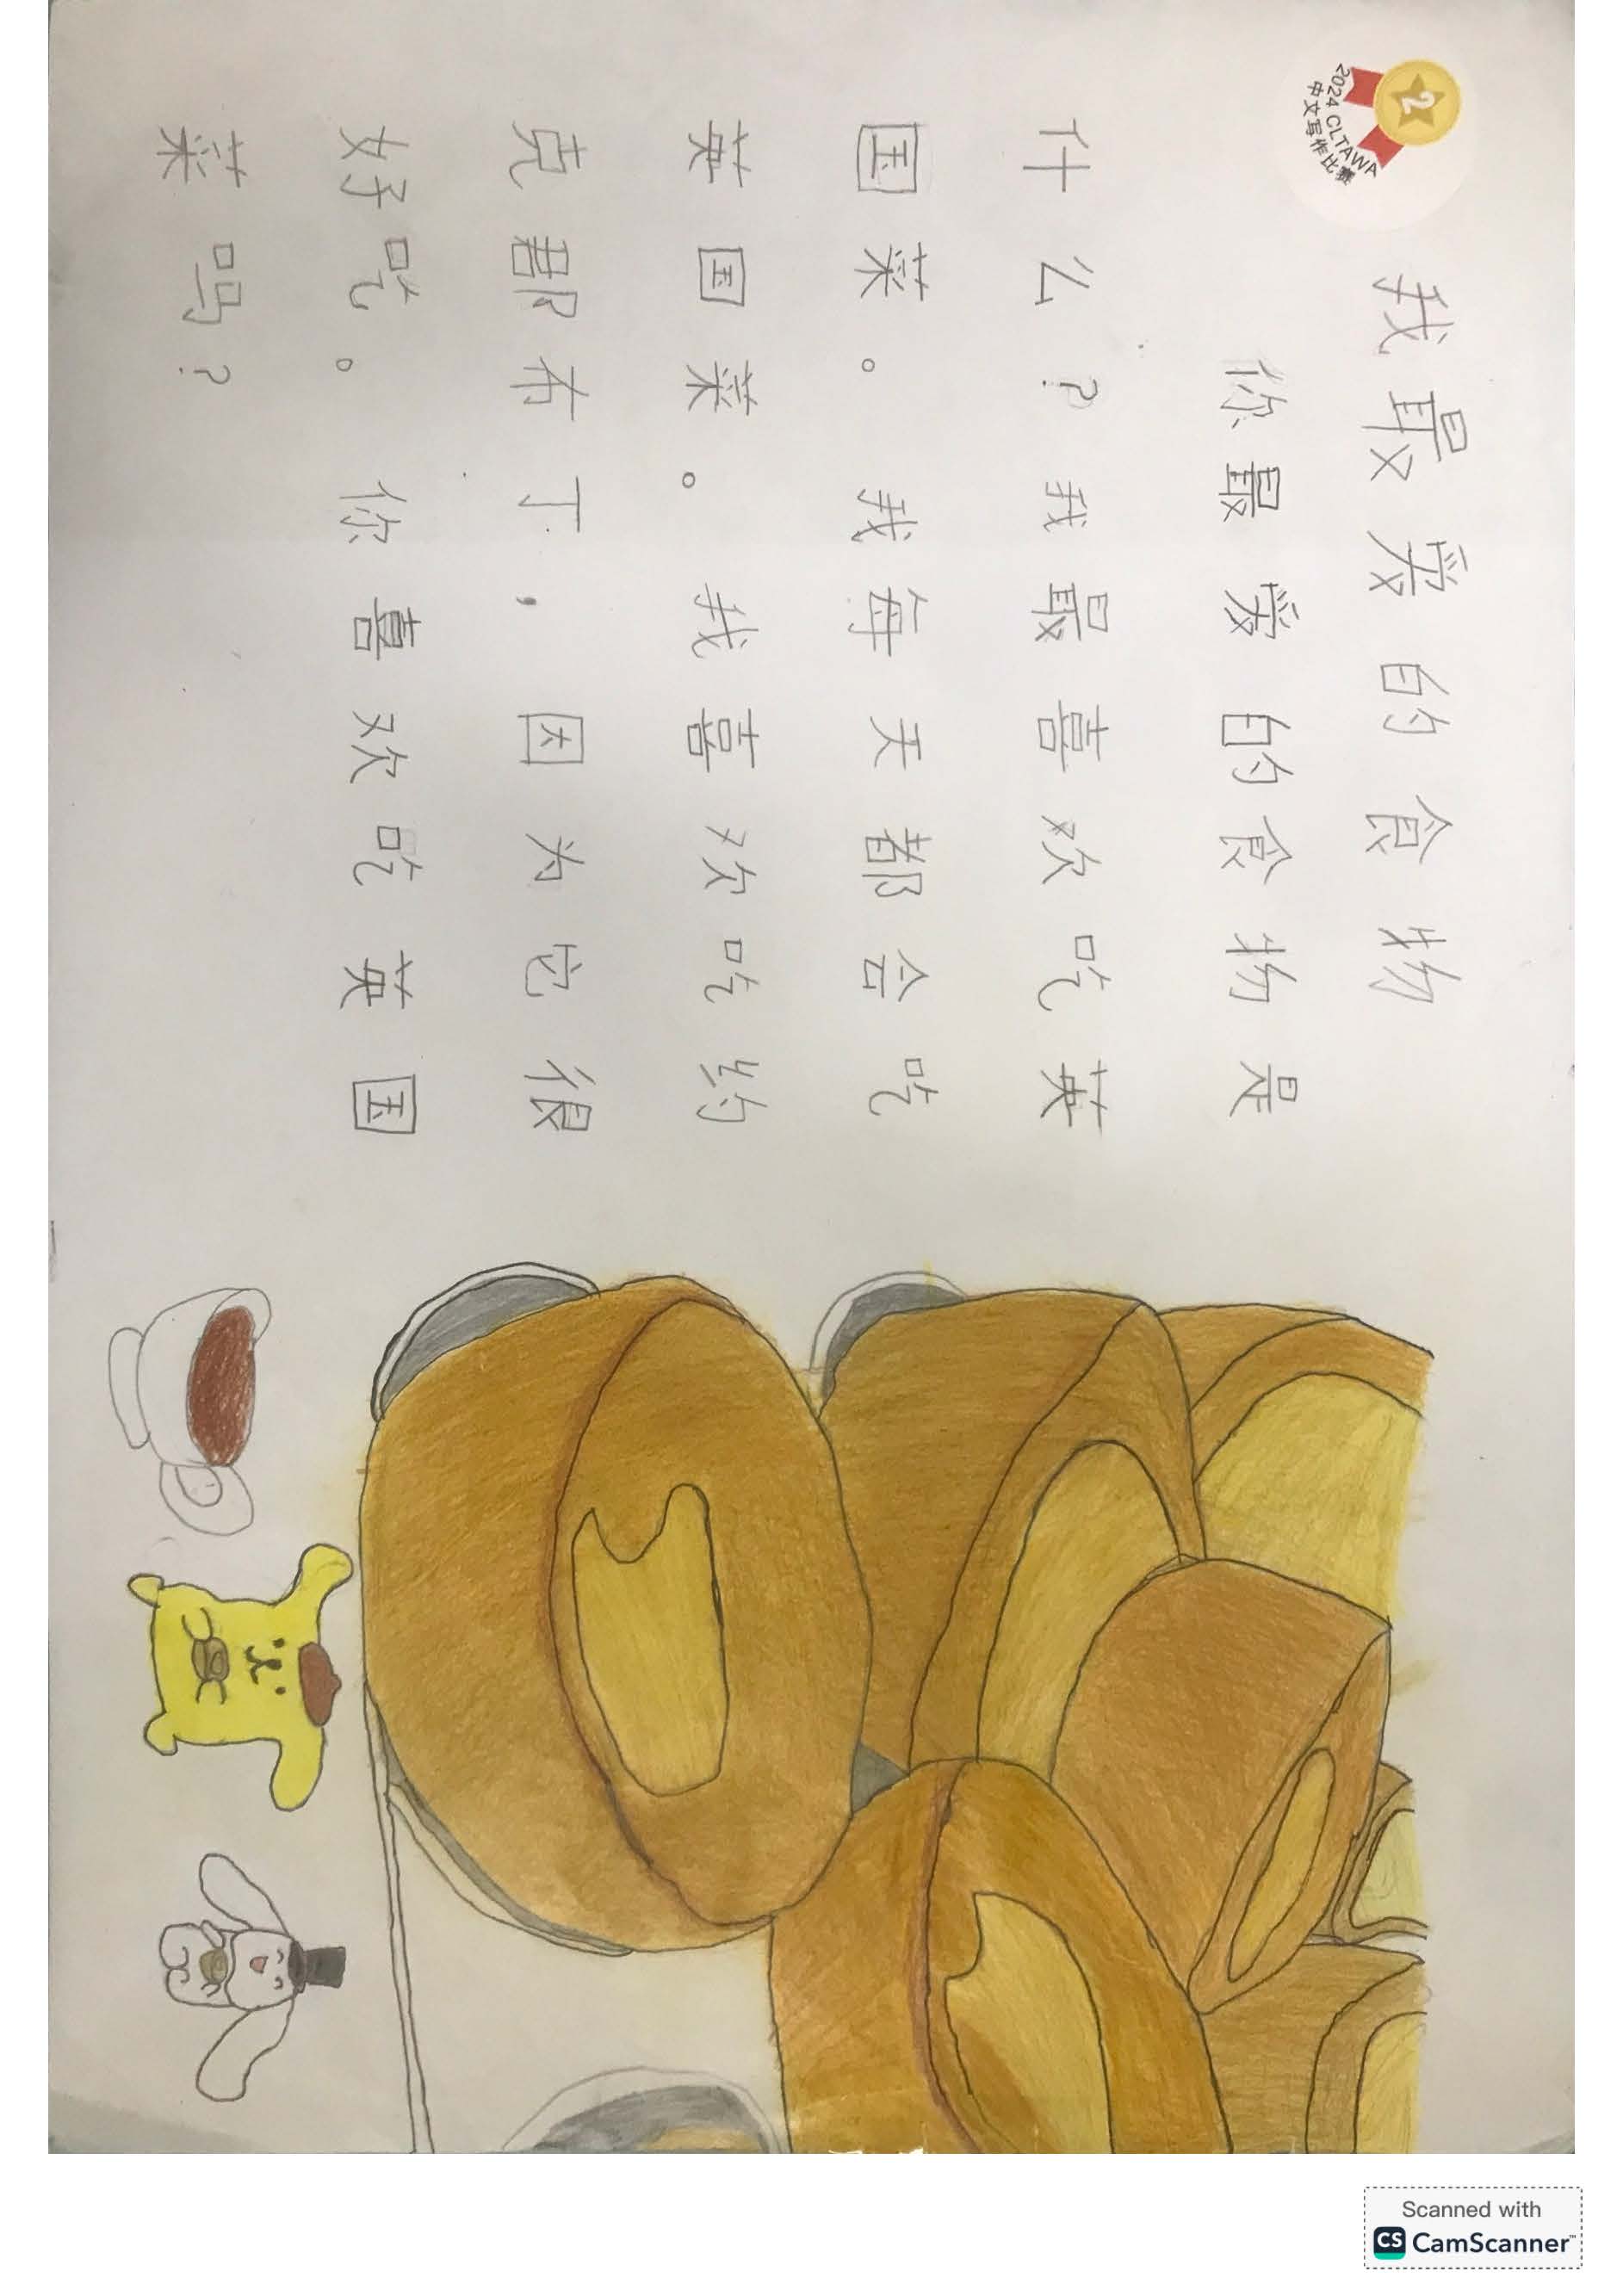 2
2024 CLTAWA
中文写作比赛
我最爱的食物
你最爱的食物是
什么？我最喜欢吃英
国菜。我每天都会吃
英国菜。我喜欢吃约
克郡布丁，因为它很
好吃。你喜欢吃英国
菜吗？
Scanned with
CS CamScanner™